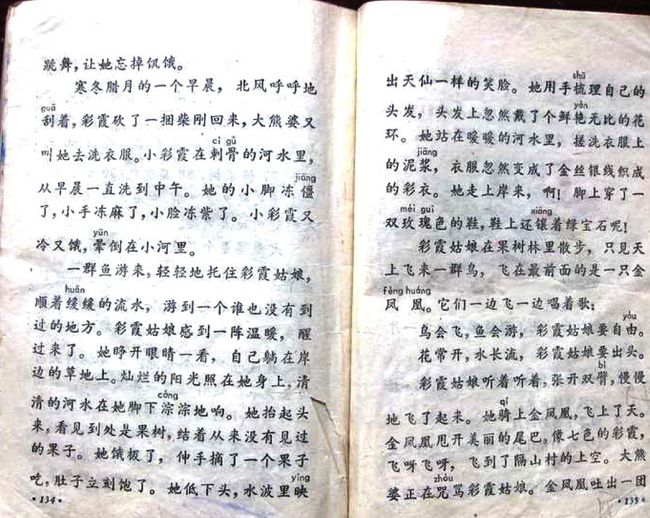 跳舞，让她忘掉饥饿。
寒冬腊月的一个早晨，北风呼呼地
guā
刮着，彩霞砍了一捆柴刚回来，大熊婆又
cì gǔ
叫她去洗衣服。小彩霞在刺骨的河水里，
jiāng
从早晨一直洗到中午。她的小脚冻僵
了，小手冻麻了，小脸冻紫了。小彩霞又
yūn
冷又饿，晕倒在小河里。
一群鱼游来，轻轻地托住彩霞姑娘，
huǎn
顺着缓缓的流水，游到一个谁也没有到
过的地方。彩霞姑娘感到一阵温暖，醒
过来了。她睁开眼睛一看，自己躺在岸
边的草地上。灿烂的阳光照在她身上，清
cóng
清的河水在她脚下淙淙地响。她抬起头
来，看见到处是果树，结着从来没有见过
的果子。她饿极了，伸手摘了一个果子
yìng
吃，肚子立刻饱了。她低下头，水波里映
·134·
shū
出天仙一样的笑脸。她用手梳理自己的
yàn
头发，头发上忽然戴了个鲜艳无比的花
环。她站在暖暖的河水里，搓洗衣服上
jiāng
的泥浆，衣服忽然变成了金丝银线织成
的彩衣。她走上岸来，啊！脚上穿了一
méi guī xiāng
双玫瑰色的鞋，鞋上还镶着绿宝石呢！
彩霞姑娘在果树林里散步，只见天
上飞来一群鸟，飞在最前面的是一只金
Fèng huáng
凤凰。它们一边飞一边唱着歌：
yóu
鸟会飞，鱼会游，彩霞姑娘要自由。
花常开，水长流，彩霞姑娘要出头。
bì
彩霞姑娘听着听着，张开双臂，慢慢
qí
地飞了起来。她骑上金凤凰，飞上了天。
金凤凰甩开美丽的尾巴。像七色的彩霞，
飞呀飞呀，飞到了隔山村的上空。大熊
zhòu
婆正在咒骂彩霞姑娘。金凤凰吐出一团
135·